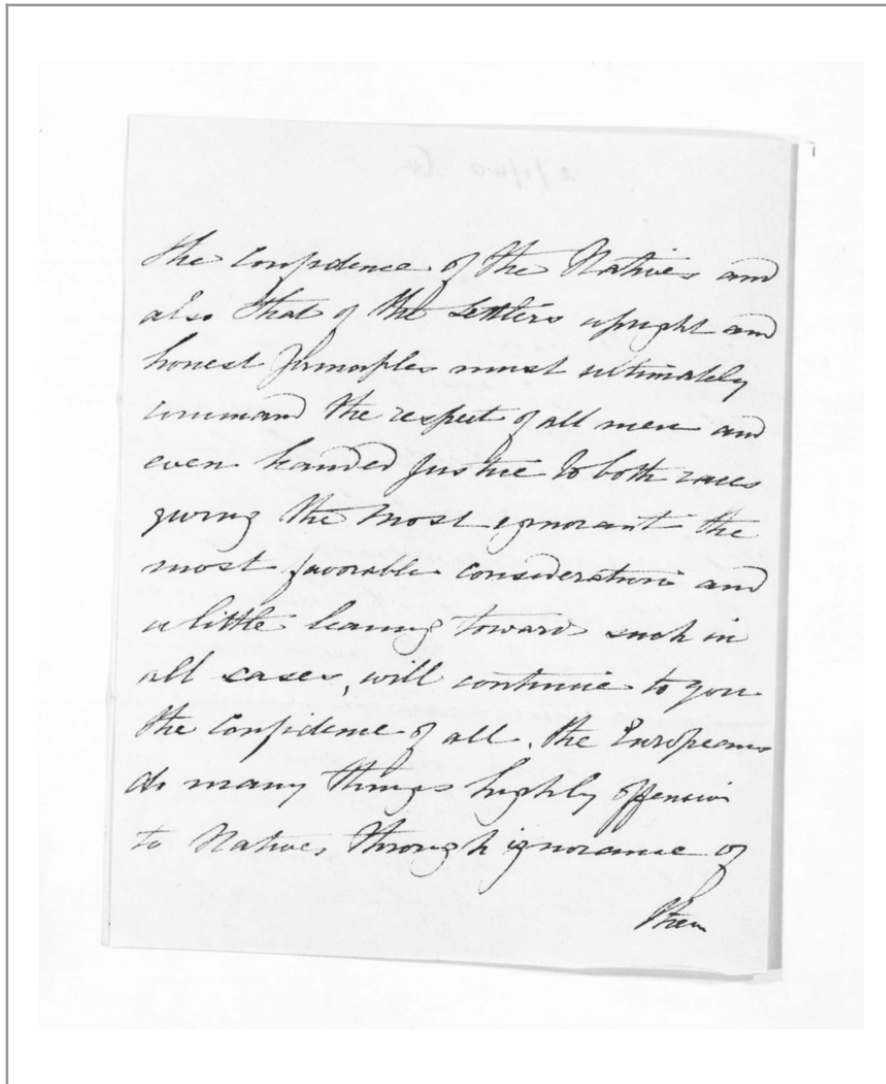 the confidence of the Natives and
also that of the Settlers upright and
honest principles must ultimately
command the respect of all men and
even handed justice to both races
giving the most ignorant the
most favorable consideration and
a little leaning towards such in
all cases, will continue to you
the confidence of all. The Europeans
do many things highly offensive
to Natives through ignorance of
their